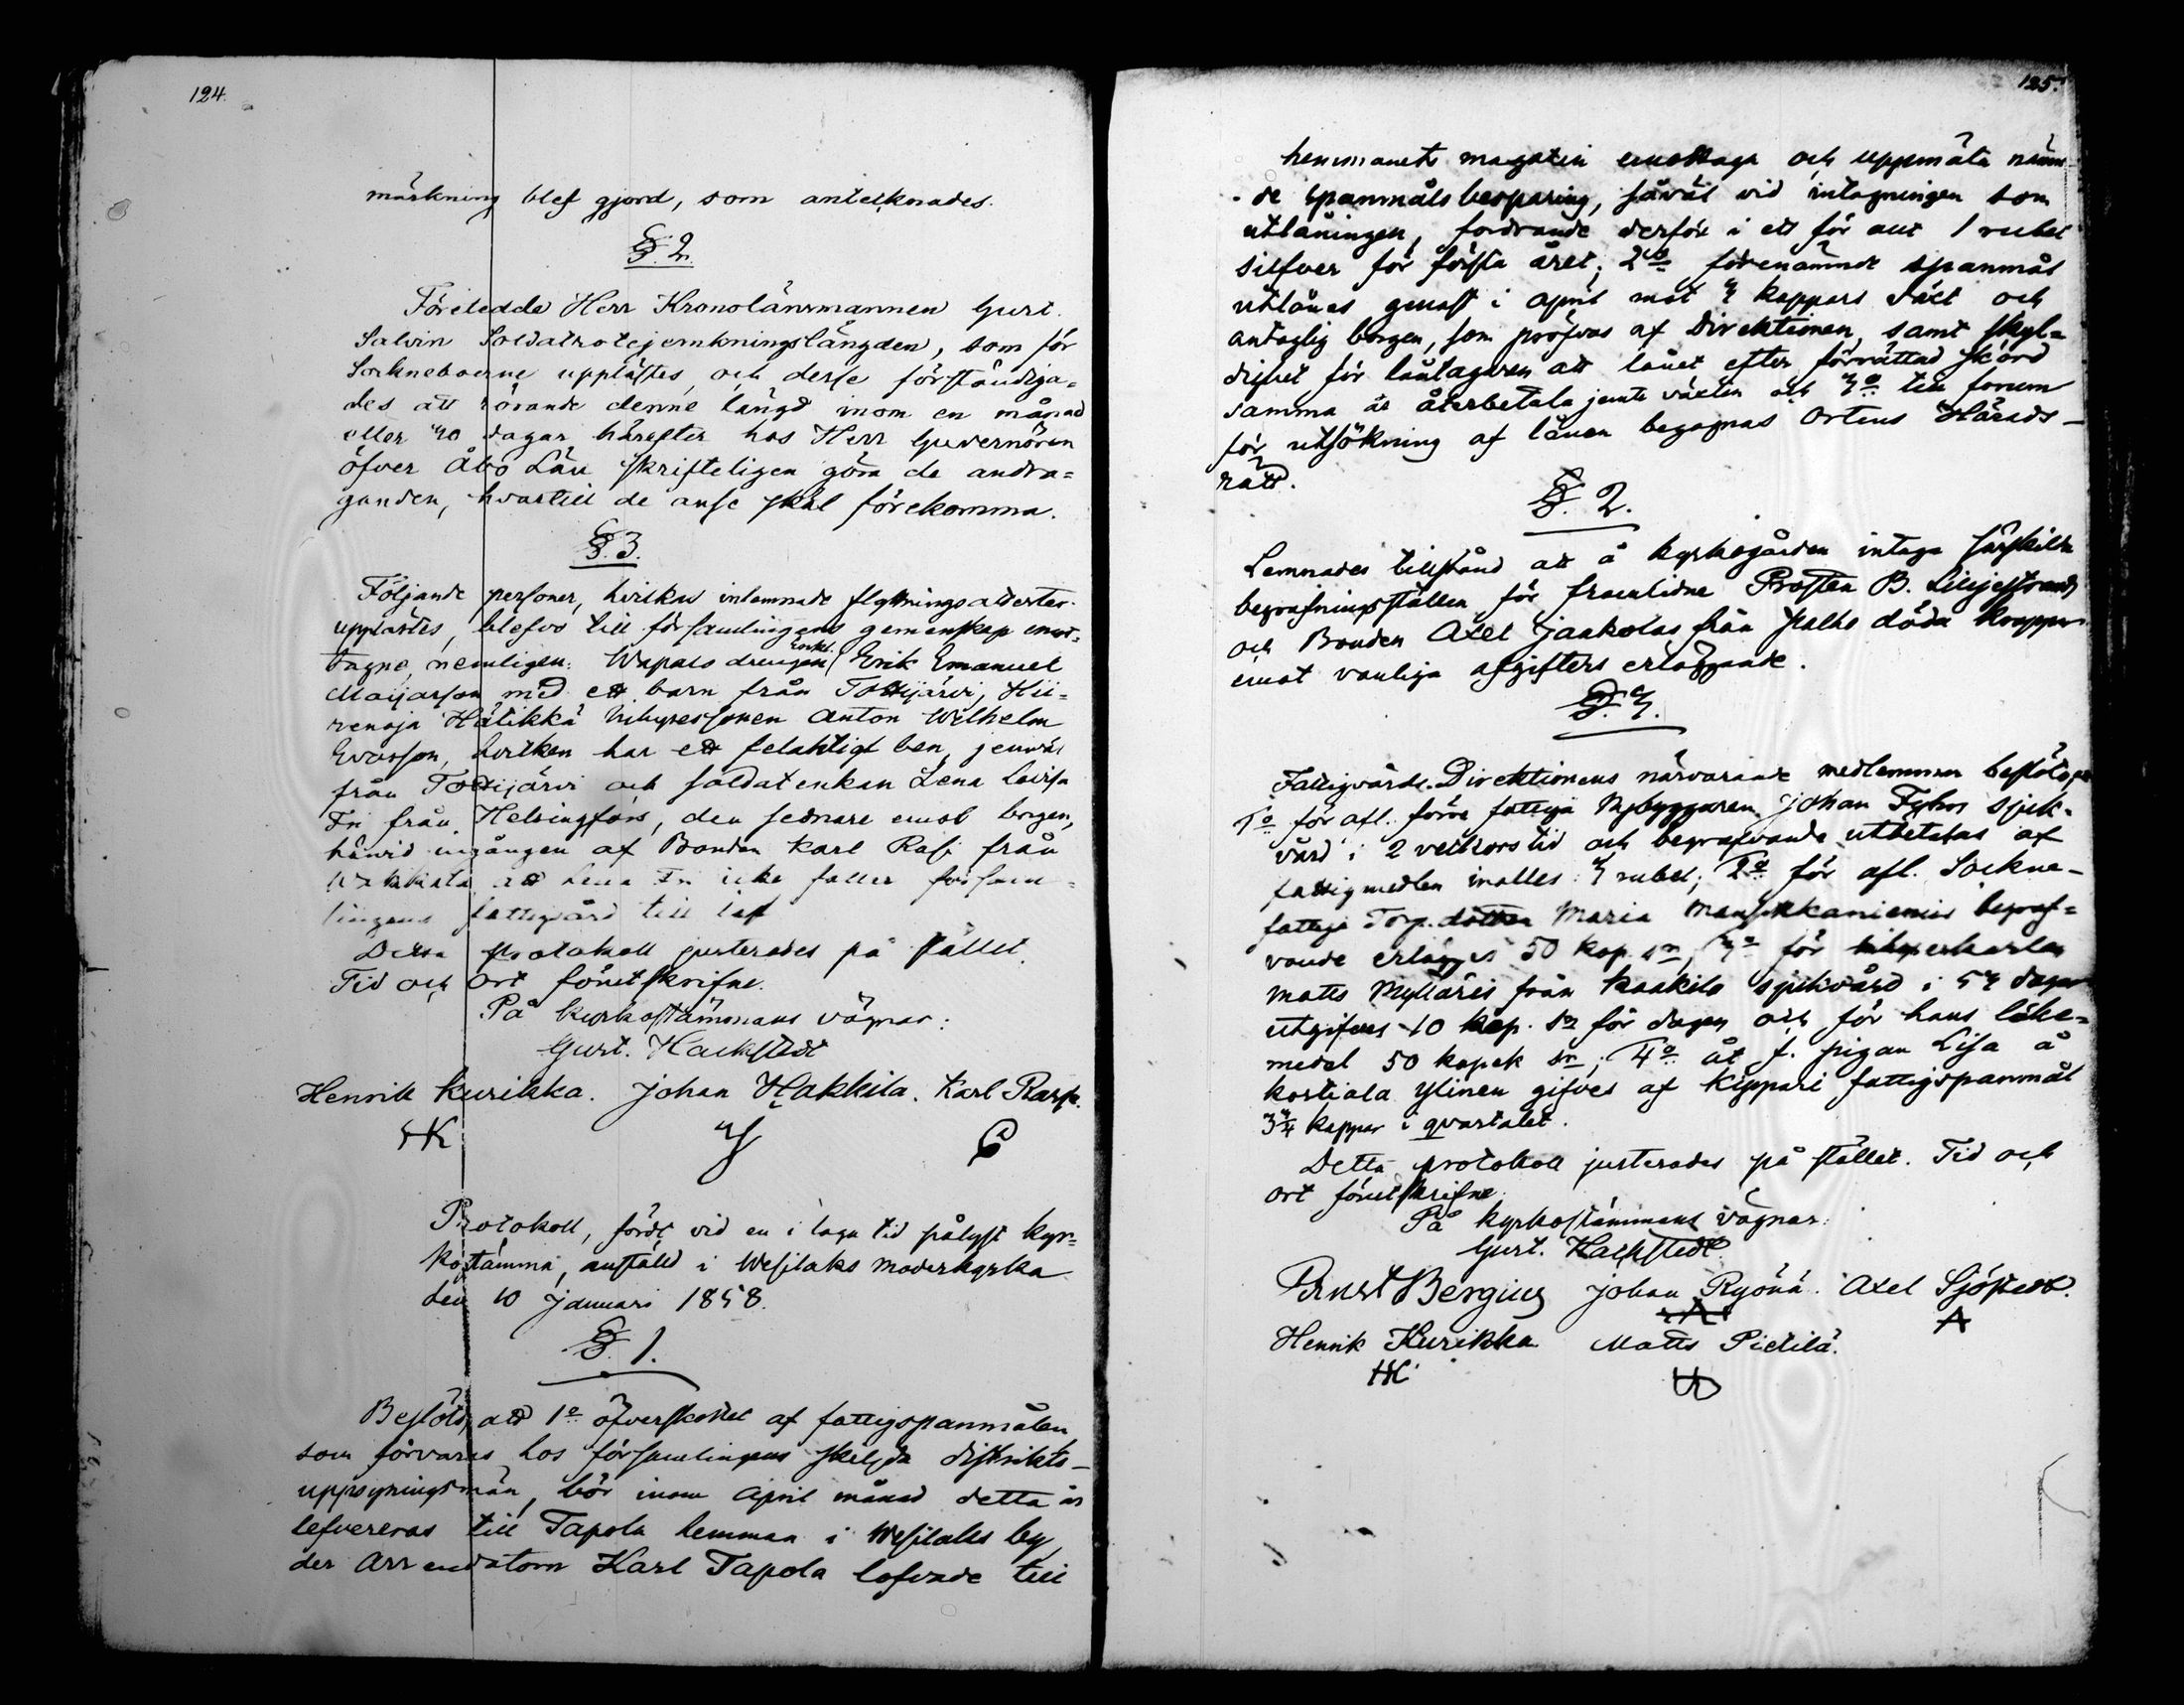 124.
märkning blef gjord, som antecknades.
§. 2.
Företedde Herr Kronolänsmannen Gust.
Salvin Soldatrotejemkningslängden, som för
Sockneboerne upplästes och desse förständiga=
des att rörande denne längd inom en månad
eller 30 dagar härefter hos Herr Guvernören
öfver Åbo Län skrifteligen göra de andra=
ganden, hvartill de anse skäl förekomma.
§. 3.
Följande personer, hvilkas inlemnade flyttningsattester
upplästes, blefvo till församlingens gemenskap emot-
tagne, nemligen: Wapals drengen Enkl. Erik Emanuel
Maijasson med ett barn från Tottijärvi, Hii=
renoja Hätikkä Inhysessonen Anton Wilhelm
Evasson, hvilken har ett felaktigt ben, jemväl
från Tottijärvi och soldatenkan Lena Lovisa
Fri från Helsingfors, den sednare emot borgen,
härvid ingången af Bonden Karl Rasi från
att Lena Fri icke faller försam=
lingens fattigvård till last
Detta protokoll justerades på stället.
Tid och ort förutskrifne.
På kyrkostämmans vägnar:
Gust. Hackstedt
Henrik Kurikka. Johan Hakkila. Karl Rasi.
HK
Protokoll, fördt vid en i laga tid pålyst kyr=
kostämma, anställd i Wesilaks moderkyrka
den 10 Januari 1858.
§. 1.
Beslöts, att 1o öfverskottet af fattigspanmålen,
som förvaras hos församlingens skiljda distrikts-
uppsyningsmän, bör inom April månad detta år
lefvereras till Tapola hemman i Wesilaks by,
der Arrendatorn Karl Tapola lofvade till
125.
hemmanets magazin emottaga och uppmäta nämn-
de spanmåls besparing, såväl vid intagningen som
utlåningen, fordrande derför i ett för allt 1 rubel
silfver för första året; 2o förenämnde spanmål
utlånas genast i April mot 3 kappars växt och
antaglig borgen, som pröfvas af Direktionen, samt skyl=
dighet för låntagaren att lånet efter förrättad skörd
samma år återbetala jemte växten och 3o till forum
för utsökning af lånen begagnas Ortens Härads-
rätt.
§. 2.
Lemnades tillstånd att å kyrkogården intaga särskilda
begrafningsställen för framlidne Prosten B. Liljestrand
och Bonden Axel Jaakolas från Palho döda kroppar
emot vanliga afgifters erläggande.
§. 3.
Fattigvårds-Direktionens närvarande medlemmar beslöto,
1o för afl. förre fattiga Nybyggaren Johan sjuk-
vård i 2 veckors tid och begrafvande utbetalas af
fattigmedlen inalles 3 rubel; 2o för afl. Sockne-
fattiga Torp. dottren Maria begraf=
vande erlägges 50 kop. sr; 3o för Inhyseskarlen
Matts Mylläris från Kaakila sjukvård i 53 dagar
utgifves 10 kop. sr för dagen och för hans läke=
medel 50 kopek sr; 4o åt f. pigan Lisa å
Kostiala Ylinen gifves af Kippari fattigspanmål
3 3/4 kappar i qvartalet.
Detta protokoll justerades på stället. Tid och
ort förutskrifne.
På kyrkostämmans vägnar:
Gust. Hackstedt.
Ernst Bergius Johan Ryönä. Axel Sjöstedt.
A
Henrik Kurikka Matts Pietilä.
HK